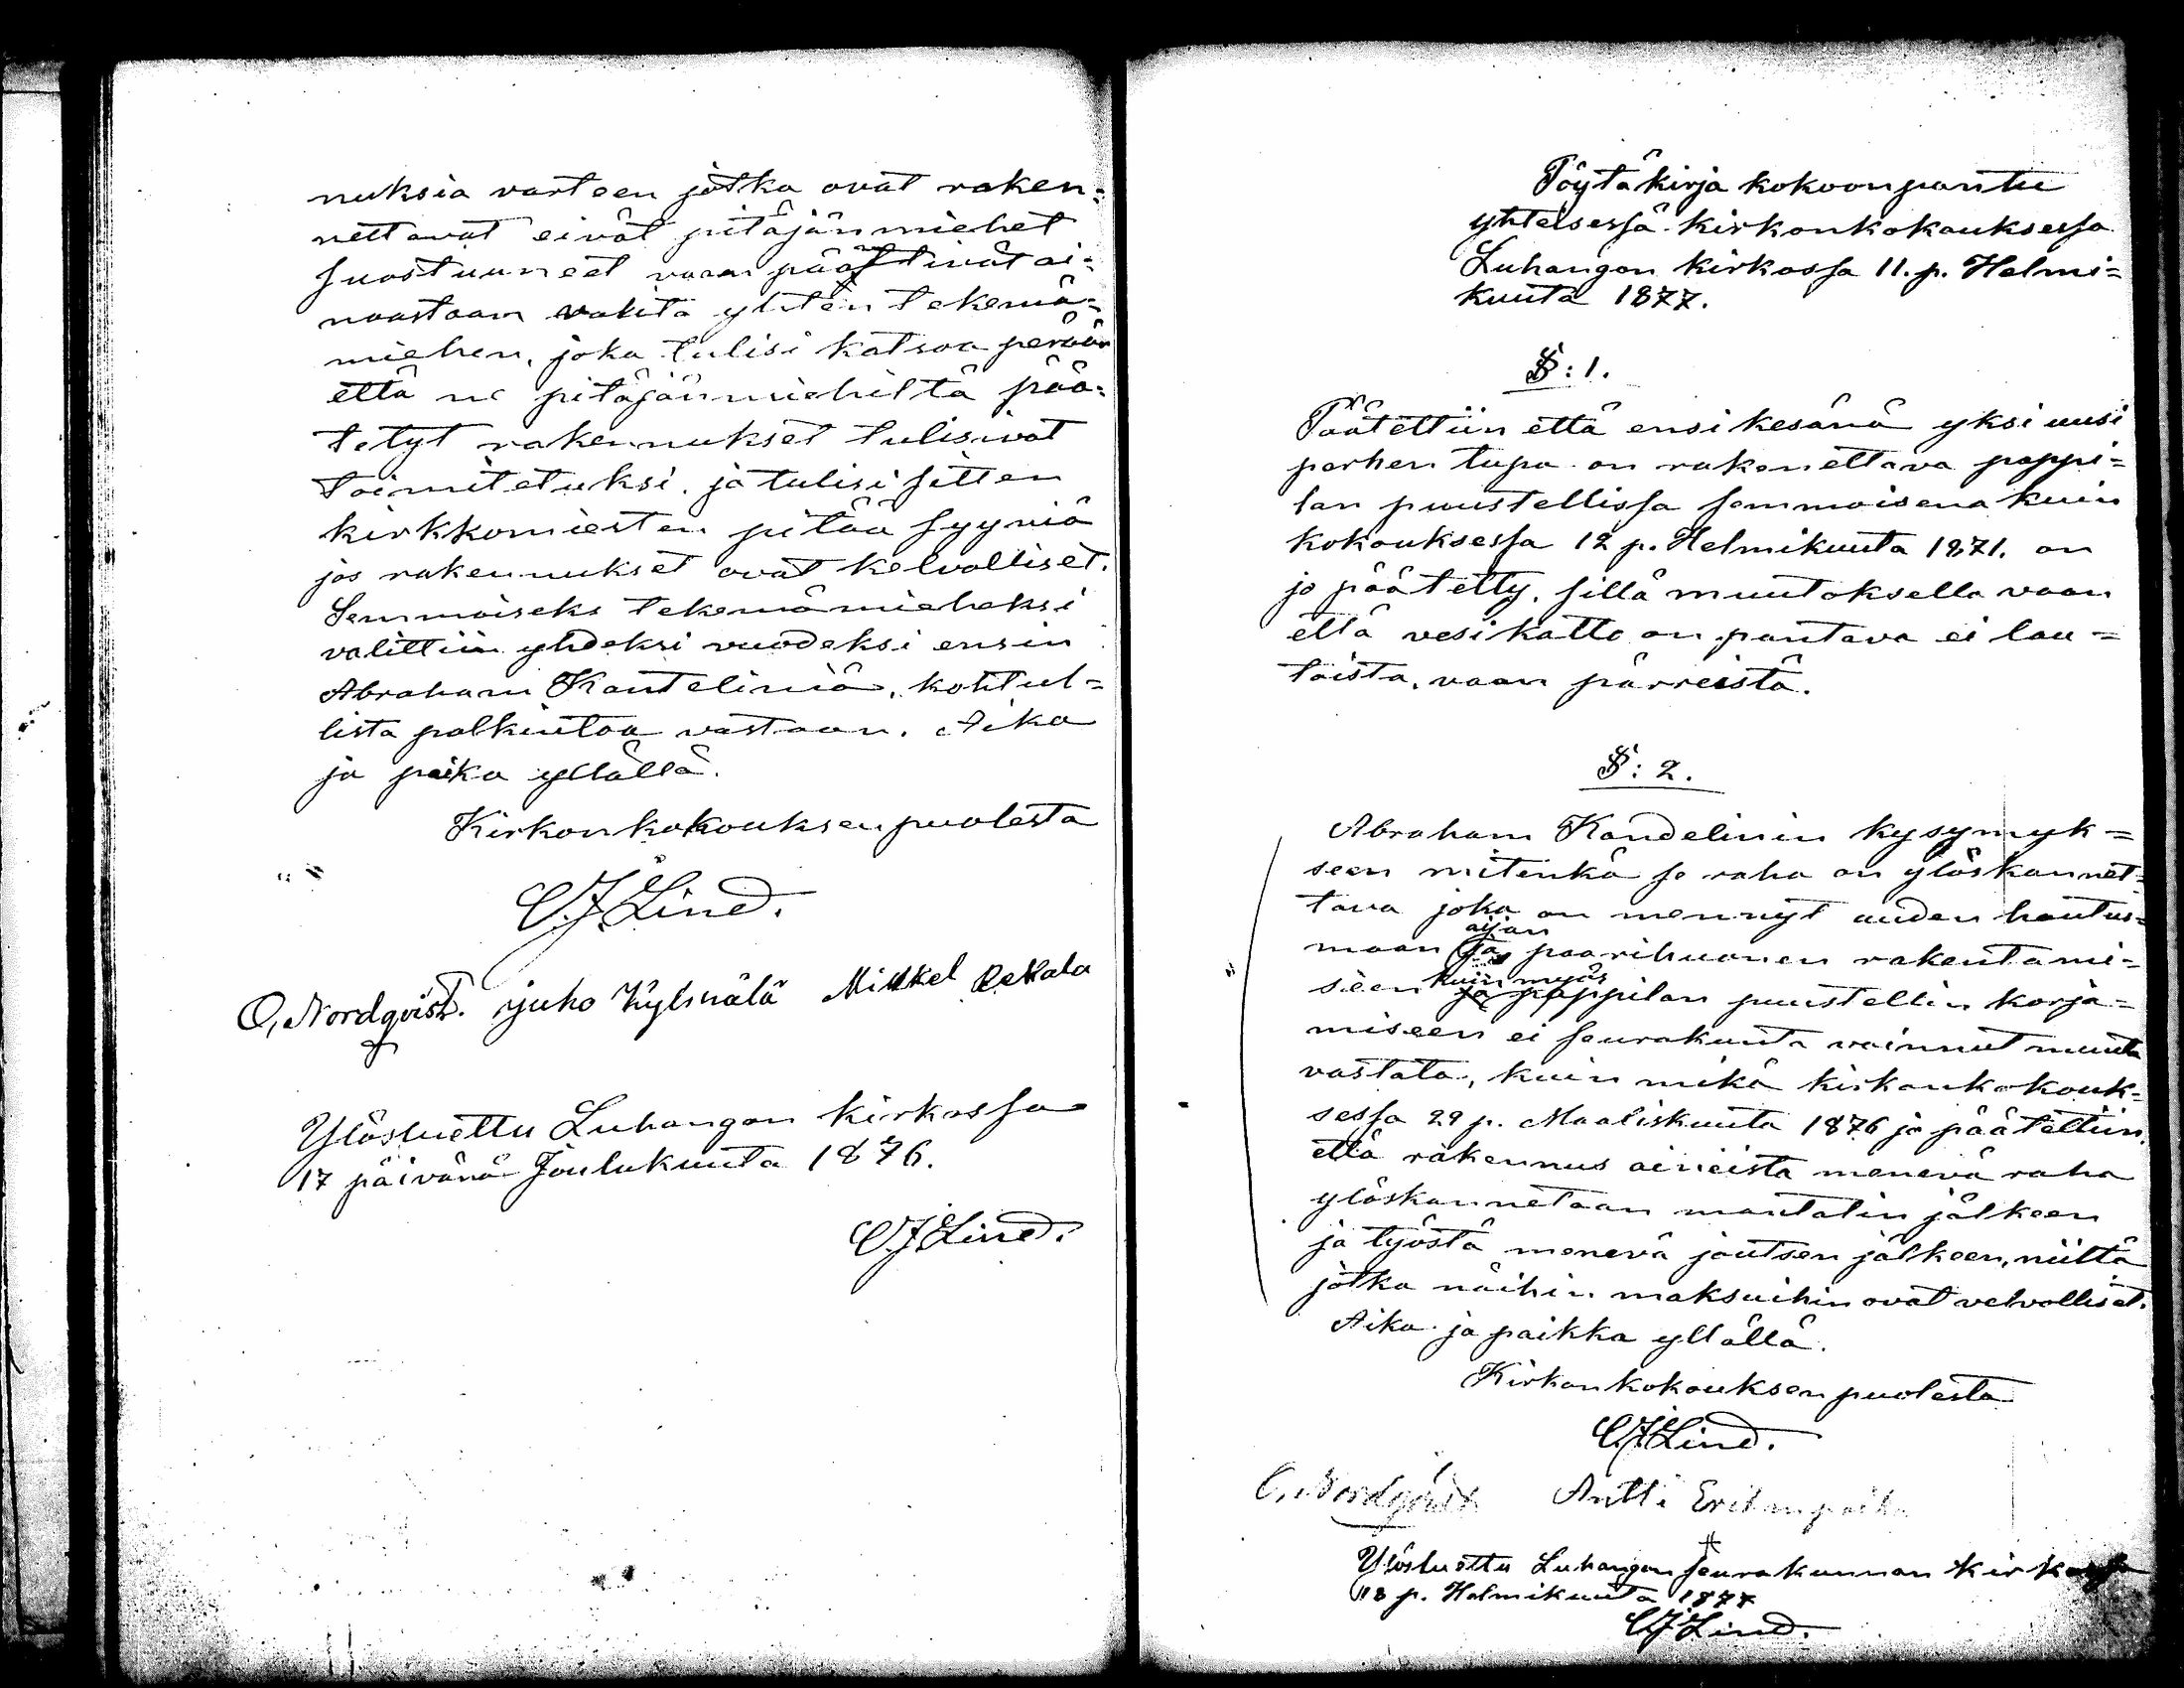 nuksia varteen jotka ovat raken=
nettavat eivät pitäjänmiehet
suostuuneet vaan päättivät ai=
noastaan valita yhten tekemä=
miehen, joka tulisi katsoa perään
että ne pitäjänmiehiltä pää=
tetyt rakennukset tulisivat
toimitetuksi. ja tulisi sitten
kirkkomiesten pitää syyniä
jos rakennukset ovat kelvolliset.
Semmoiseks tekemämieheksi
valittiin yhdeksi vuodeksi ensin
Abraham Kanteliniä, kohtul=
lista palkintoa vastaan. Aika
ja paika yllällä.
Kirkonkokouksen puolesta
C.J. Lind.
O, Nordqvist. juho Kylmälä Mikkel Rekala
Ylösluettu Luhangan kirkossa
17 päivänä Joulukuuta 1876.
C.J. Lind.
Pöytäkirja kokoonpantu
yhteisessä kirkonkokouksessa
Luhangan kirkossa 11. p. Helmi=
kuuta 1877.
§: 1.
Päätettiin että ensi kesänä yksi uusi
perhen tupa on rakenettava pappi=
lan puustellissa semmoisena kuin
kokouksessa 12 p. Helmikuuta 1871. on
jo päätetty, sillä muutoksella vaan
että vesikatto on pantava ei lau=
toista, vaan pärreistä.
§: 2.
Abraham Kandelinin kysymyk=
seen mitenkä se raha on ylöskannet=
tava joka on mennyt uuden hautus=
maan aijan ja paarihuonen rakentami=
seen kuin myös pappilan puustellin korja=
miseen ei seurakunta voinnut muuta
vastata, kuin mikä kirkonkokouk=
sessa 29 p. Maaliskuuta 1876 jo päätettiin,
että rakennus aineista menevä raha
ylöskannetaan mantalin jälkeen
ja työstä menevä joutsen jälkeen, niiltä
jotka näihin maksuihin ovat velvolliset.
Aika ja paikka yllällä.
Kirkonkokouksen puolesta
C.J. Lind.
O, Nordqvist Antti
Ylösluettu Luhangan seurakunnan kirkossa
18 p. Helmikuuta 1877
C.J. Lind.